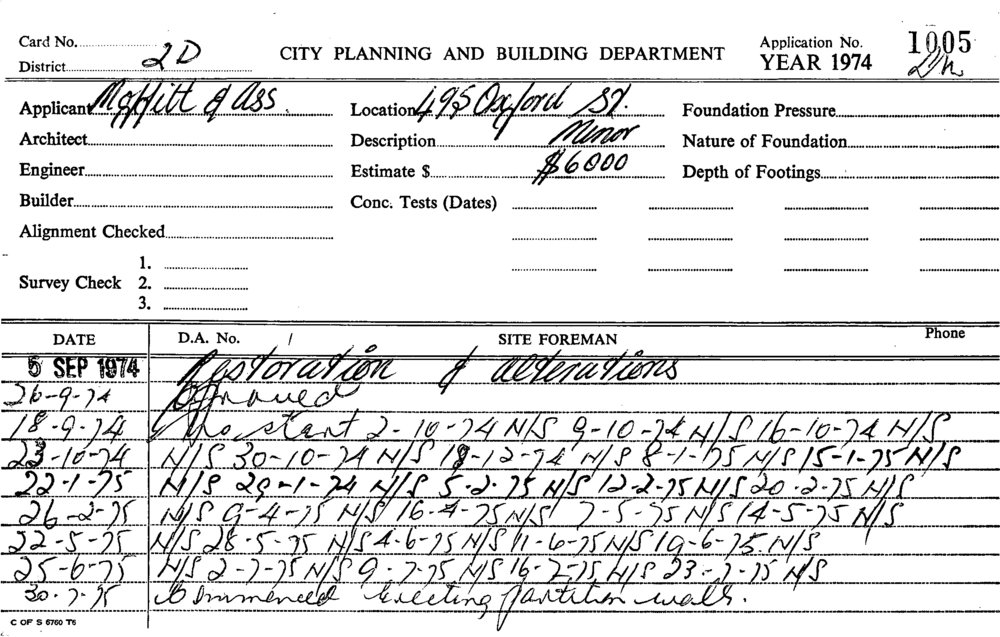 Card No. 2D
District
CITY PLANNING AND BUILDING DEPARTMENT
Application No. 1005
YEAR 1974
Applicant Moffitt & Ass.
Location 495 Oxford St.
Foundation Pressure
Architect
Description Minor
Nature of Foundation
Engineer
Estimate $ $6000
Depth of Footings
Builder
Conc. Tests (Dates)
Alignment Checked
Survey Check 1.
2.
3.
DATE D.A. No. SITE FOREMAN Phone
5 SEP 1974 Restoration & alterations
26-9-74 Approved
18-9-74 No start 2-10-74 N/S 9-10-74 N/S 16-10-74 N/S
23-10-74 N/S 30-10-74 N/S 18-12-74 N/S 8-1-75 N/S 15-1-75 N/S
22-1-75 N/S 29-1-74 N/S 5-2-75 N/S 12-2-75 N/S 20-2-75 N/S
26-2-75 N/S 9-4-75 N/S 16-4-75 N/S 7-5-75 N/S 14-5-75 N/S
22-5-75 N/S 28-5-75 N/S 4-6-75 N/S 11-6-75 N/S 19-6-75 N/S
25-6-75 N/S 2-7-75 N/S 9-7-75 N/S 16-7-75 N/S 23-7-75 N/S
30-7-75 Commenced erecting partition walls.
C OF S 6760 T6